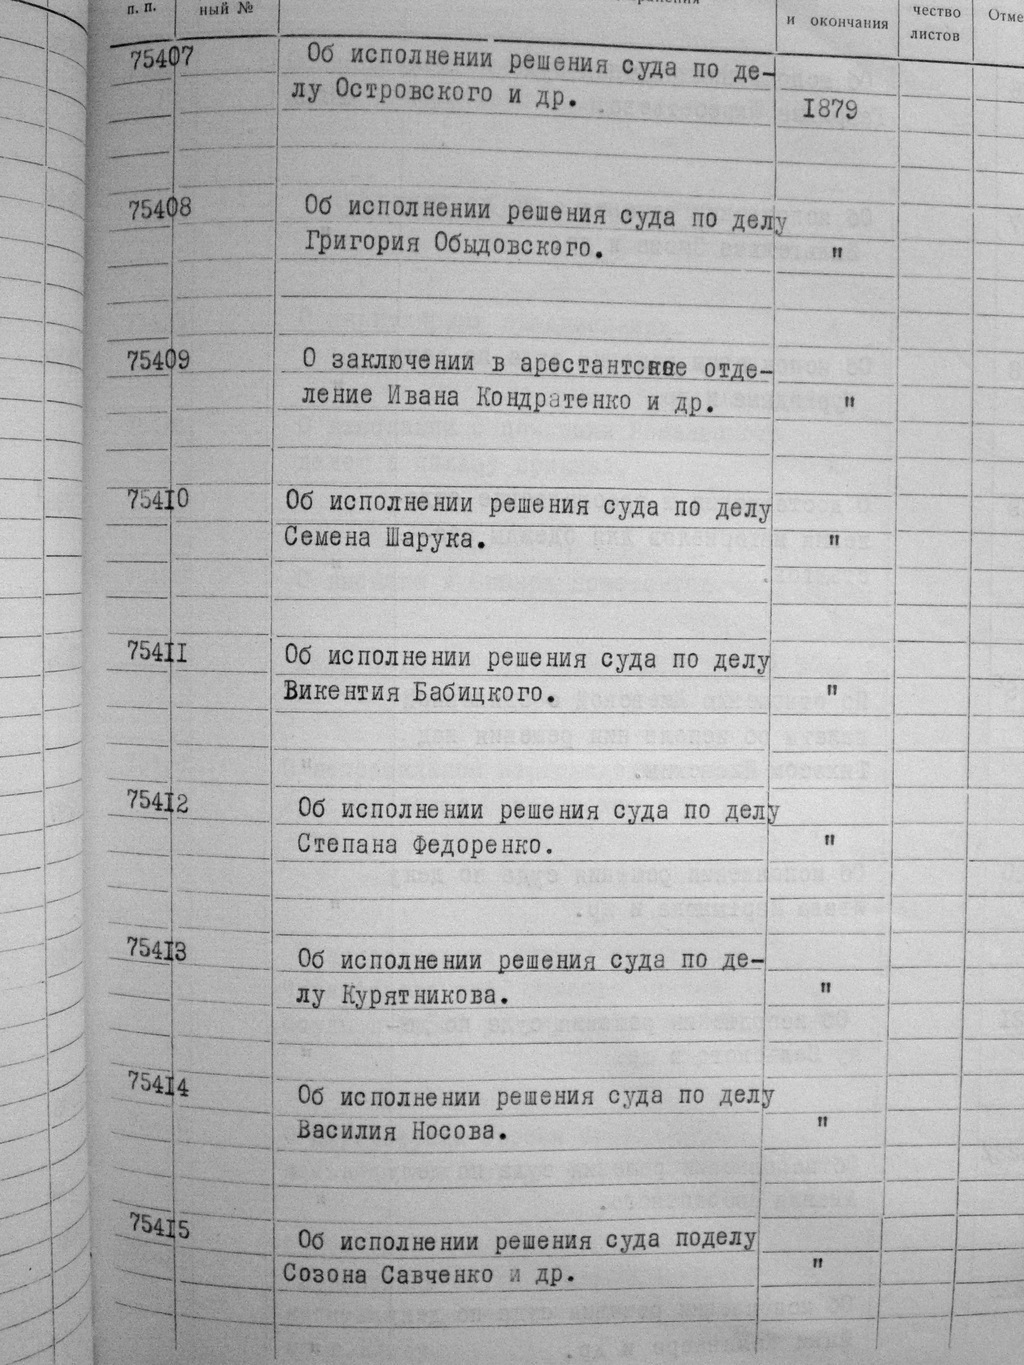 п. п.
ный №
и окончания
чество
листов
Отме
75407
Об исполнении решения суда по де-
лу Островского и др.
1879
75408
Об исполнении решения суда по делу
Григория Обыдовского.
"
75409
О заключении в арестантское отде-
ление Ивана Кондратенко и др.
"
75410
Об исполнении решения суда по делу
Семена Шарука.
"
75411
Об исполнении решения суда по делу
Викентия Бабицкого.
"
75412
Об исполнении решения суда по делу
Степана Федоренко.
"
75413
Об исполнении решения суда по де-
лу Курятникова.
"
75414
Об исполнении решения суда по делу
Василия Носова.
"
75415
Об исполнении решения суда поделу
Созона Савченко и др.
"